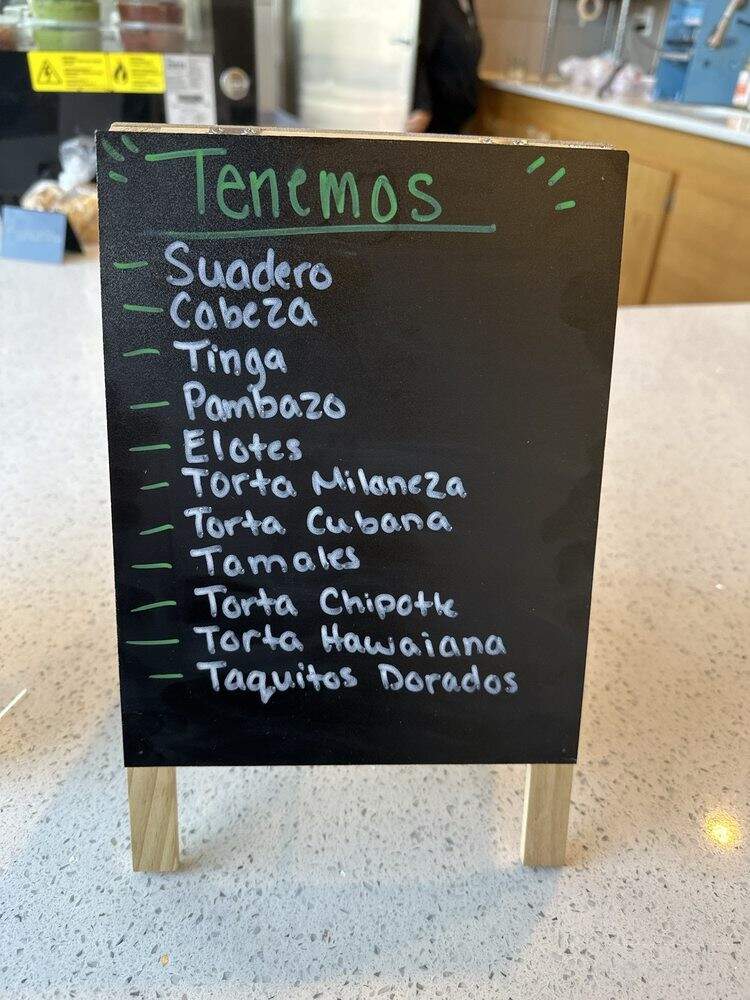 Tenemos
- Suadero
- Cabeza
- Tinga
- Pambazo
- Elotes
- Torta Milaneza
- Torta Cubana
- Tamales
- Torta Chipotle
- Torta Hawaiana
- Taquitos Dorados